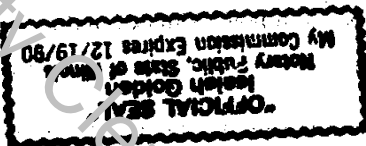 "OFFICIAL SEAL"
Isaiah Golden
Notary Public, State of Illinois
My Commission Expires 12/19/90